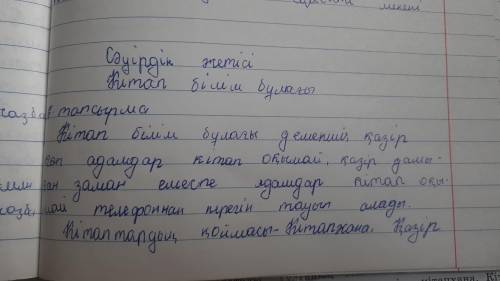 мекені
Сәуірдің жетісі
Кітап білім бұлағы
жазба тапсырма
Кітап білім бұлағы демекші, қазір
көп адамдар кітап оқымай, қазір дамы-
ған заман емеспе адамдар кітап оқы-
май телефоннан керегін тауып алады.
Кітаптардың қоймасы-Кітапхана. Қазір